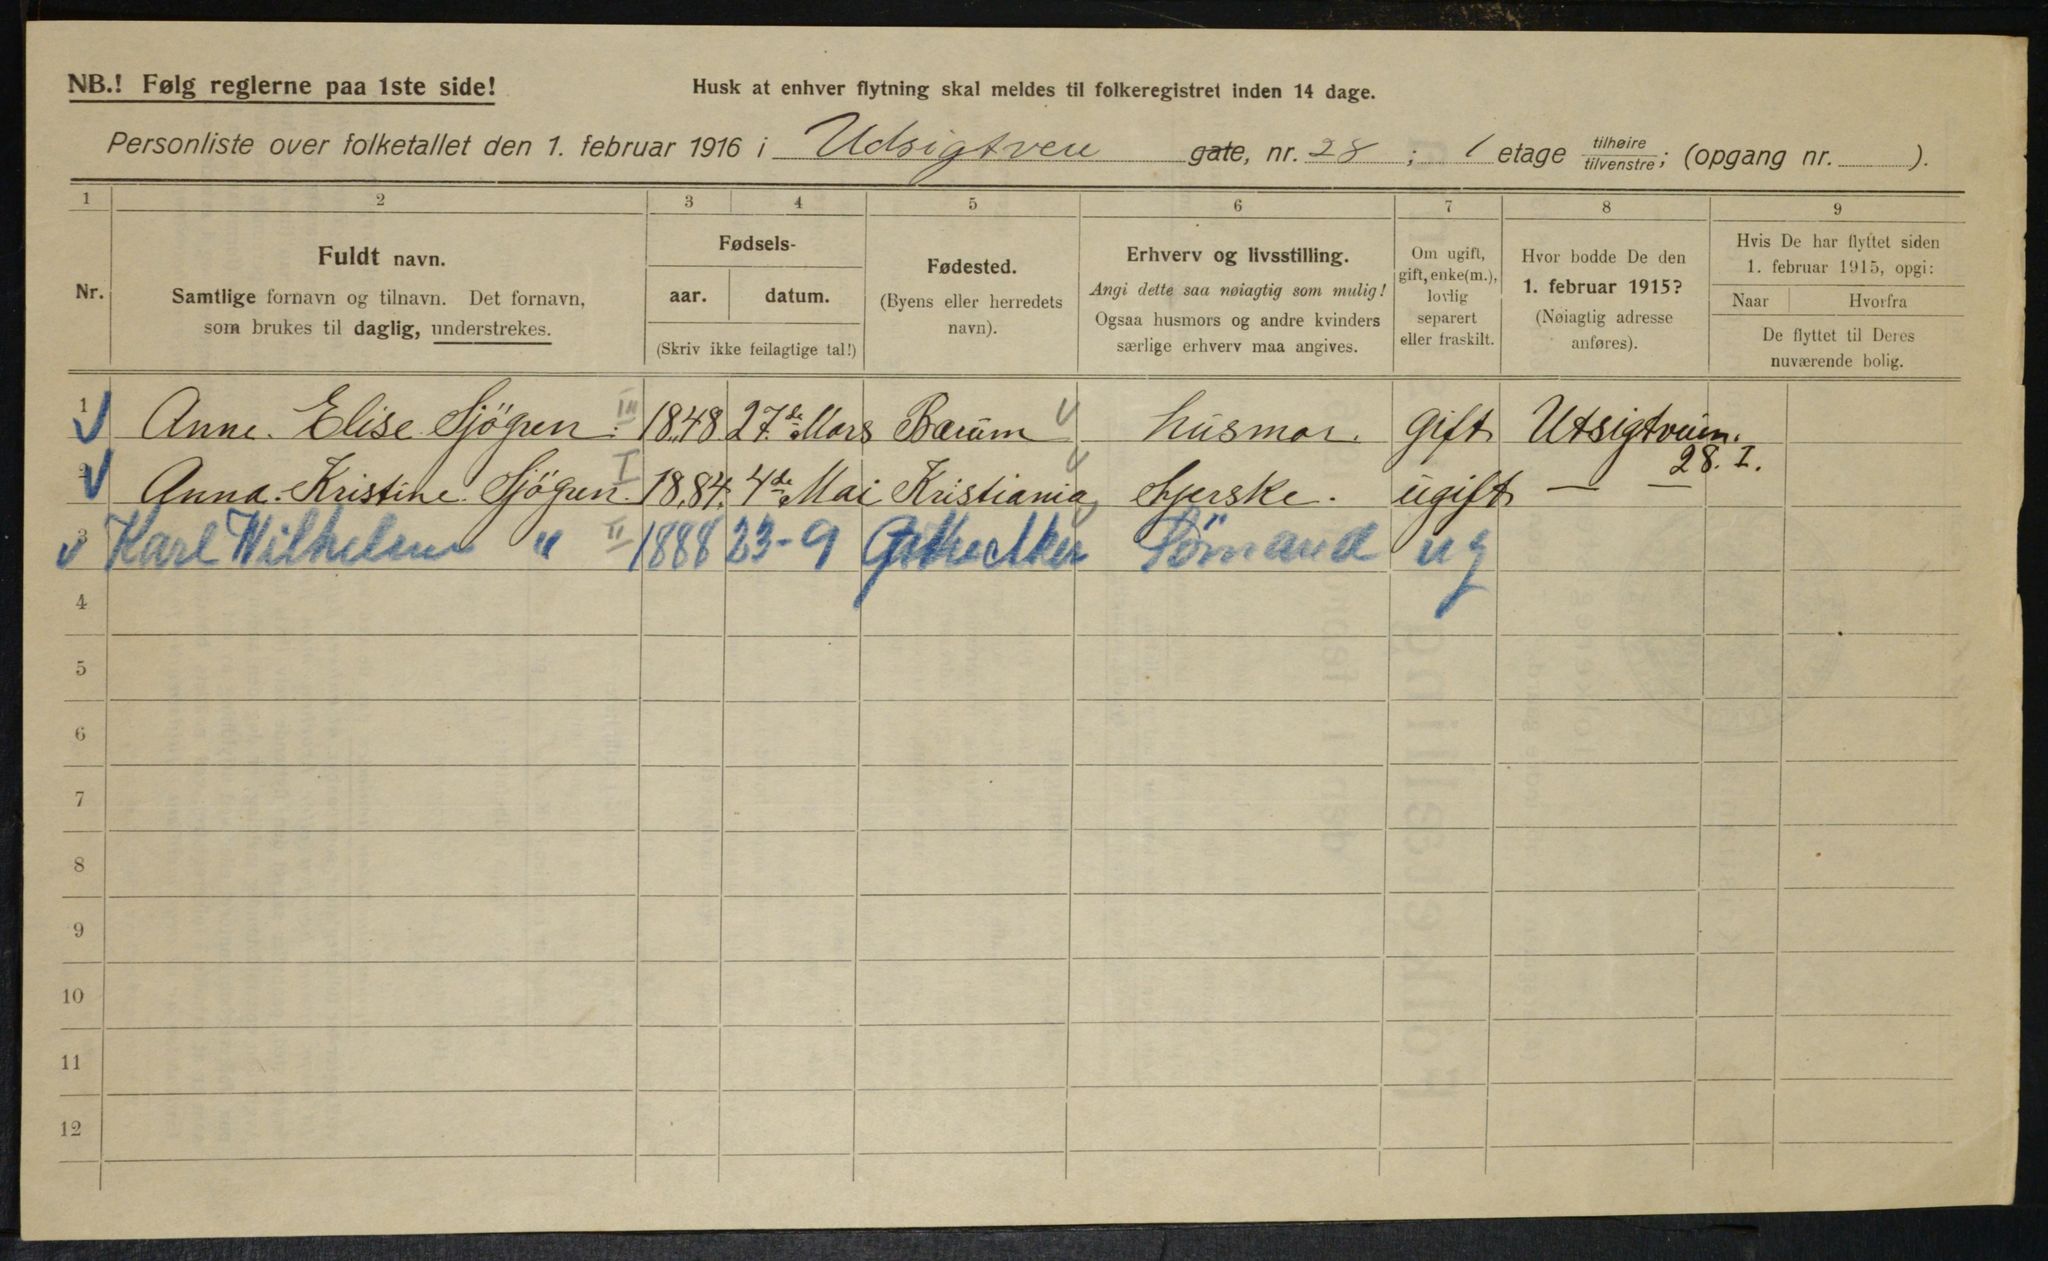 NB.! Følg reglerne paa 1ste side!
Husk at enhver flytning skal meldes til folkeregistret inden 14 dage.
Personliste over folketallet den 1. februar 1916 i Udsigtveie gate, nr. 28; 1 etage tilhøire tilvenstre; (opgang nr. ).
1 2 3 4 5 6 7 8 9
Nr.
Fuldt navn.
Samtlige fornavn og tilnavn. Det fornavn,
som brukes til daglig, understrekes.
Fødsels-
aar. datum.
(Skriv ikke feilagtige tal!)
Fødested.
(Byens eller herredets
navn).
Erhverv og livsstilling.
Angi dette saa nøiagtig som mulig!
Ogsaa husmors og andre kvinders
særlige erhverv maa angives.
Om ugift,
gift, enke(m.),
lovlig
separert
eller fraskilt.
Hvor bodde De den
1. februar 1915?
(Nøiagtig adresse
anføres).
Hvis De har flyttet siden
1. februar 1915, opgi:
Naar Hvorfra
De flyttet til Deres
nuværende bolig.
1 Anne. Elise. Sjögren. III 1848 27de Mars Bærum husmor. Gift Utsigtveien. 28. I.
2 Anna. Kristine. Sjögren. I 18.84. 4de Mai Kristiania ugift — —
3 Karl Wilhelm " II 1888 23-9 Aker Sömand ug
4
5
6
7
8
9
10
11
12